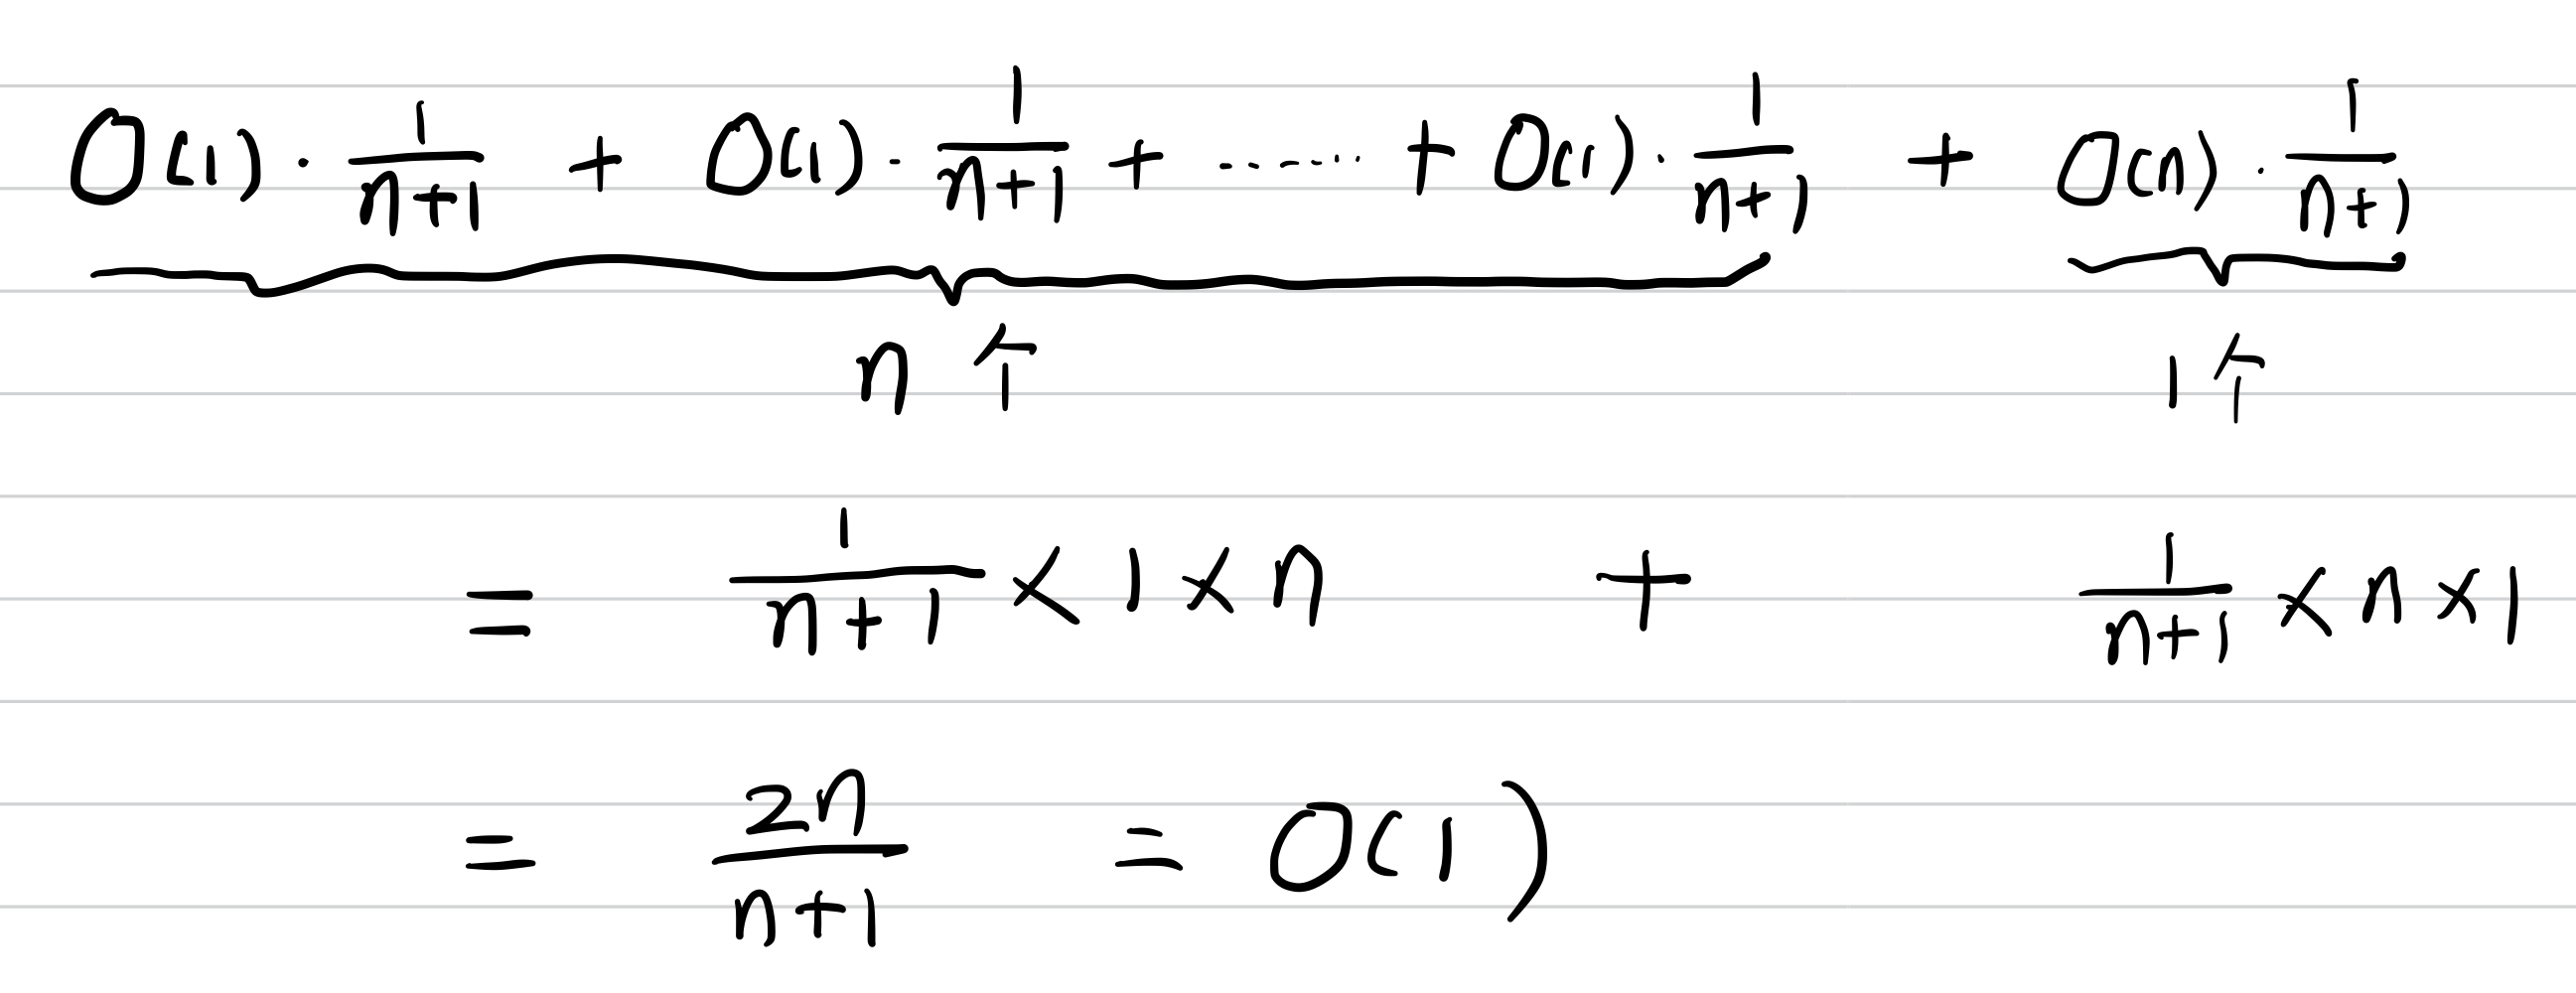 O(1)·1/(n+1) + O(1)·1/(n+1) + ...... + O(1)·1/(n+1) + O(n)·1/(n+1)
n个 1个
= 1/(n+1) × 1 × n + 1/(n+1) × n × 1
= 2n/(n+1) = O(1)